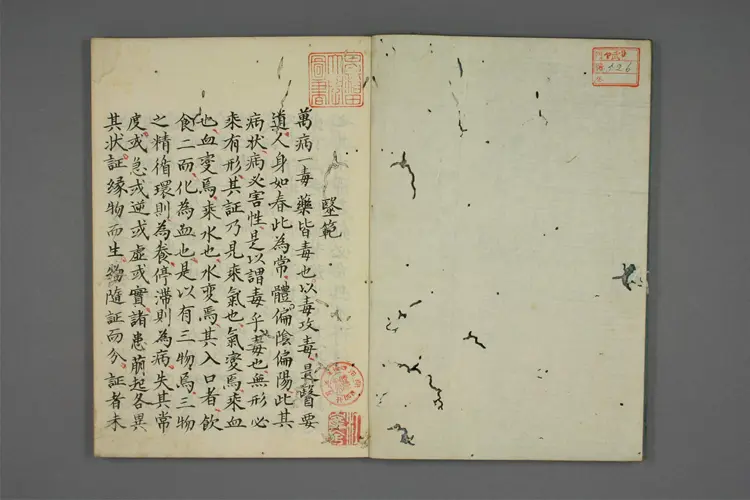 醫範
萬病一毒藥皆毒也以毒攻毒是醫要
道人身如春此為常體偏陰偏陽此其
病状病必害性是以謂毒乎毒也無形必
乘有形其証乃見乘氣也氣變焉乘血
也血變焉乘水也水變焉其入口者飲
食二而化為血也是以有三物焉三物
之精循環則為養停滞則為病失其常
度或急或逆或虚或實諸患萠起各異
其状証縁物而生隨証而分証者未